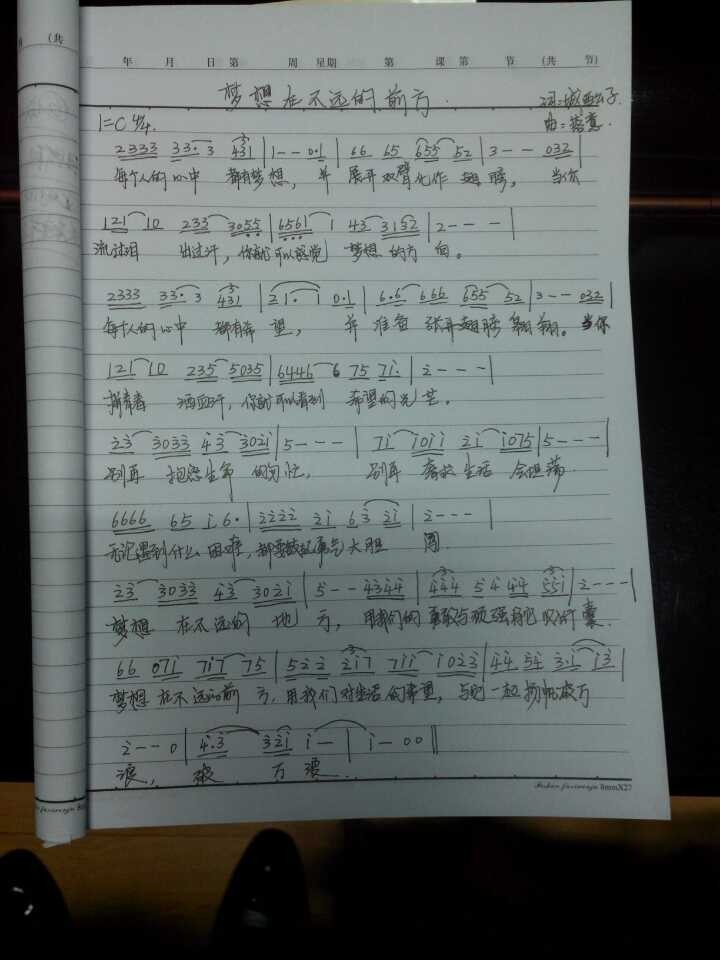 (共
年 月 日 第 周 星期 第 课 第 节 (共 节)
梦想在不远的前方.
词:城西公子.
1=C 4/4.
曲:
2333 33· 3 431 | 1 - - 0·1 | 66 65 655 52 | 3 - - 032 |
每个人的心中 都有梦想, 并 展开双臂化作 翅膀, 当你
121 10 233 3055 | 6561 1 43 3132 | 2 - - - |
流过泪 出过汗, 你就可以感觉 梦想的方向。
2333 33· 3 431 | 21· 1 0·1 | 6·6 666 655 52 | 3 - - 032 |
每个人的心中 都有希望, 并 准备 张开翅膀翱翔。当你
121 10 235 5035 | 6446 6 75 71 | 2 - - - |
洒血汗, 你就可以看到 希望的光芒。
23 3033 43 3021 | 5 - - - | 71 1011 21 1075 | 5 - - - |
别再 抱怨生命 的匆忙, 别再 生活 坦荡
6666 65 1 6· | 2222 21 63 21 | 2 - - - |
无论遇到什么 困难, 都要鼓起勇气大胆 闯.
23 3033 43 3021 | 5 - - 4344 | 444 54 44 551 | 2 - - - |
梦想 在不远的 地 方, 用我们的 与顽强将它 囊.
66 071 717 75 | 522 217 711 1023 | 44 54 3·1 13 |
梦想 在不远的前 方. 用我们对生活的希望, 与它一起扬帆破万
2 - - 0 | 4·3 321 1 - | 1 - 0 0 ||
浪, 破 万浪.
8mmX27